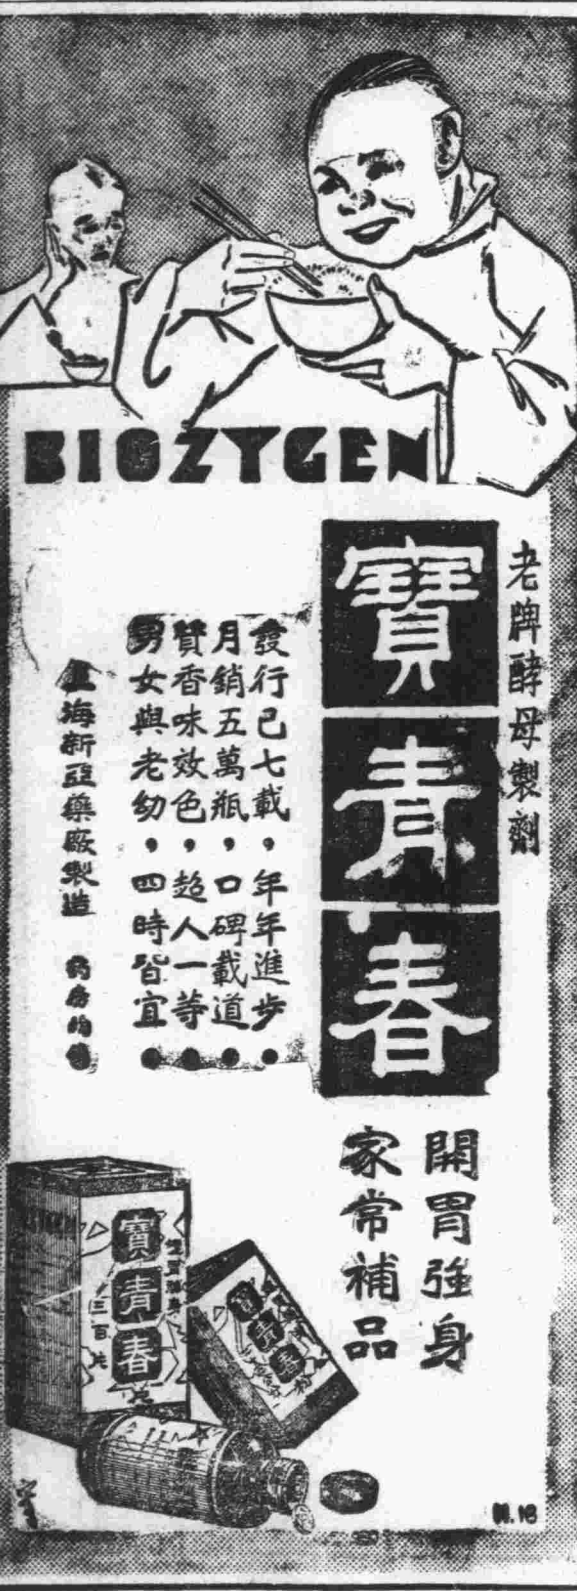 BIOZYGEN
老牌酵母製劑
寶青春
發行已七載，年年進步●
月銷五萬瓶，口碑載道●
贊香味效色，超人一等●
男女與老幼，四時皆宜●
上海新亞藥廠製造
開胃強身
家常補品
寶青春
三百片
寶青春